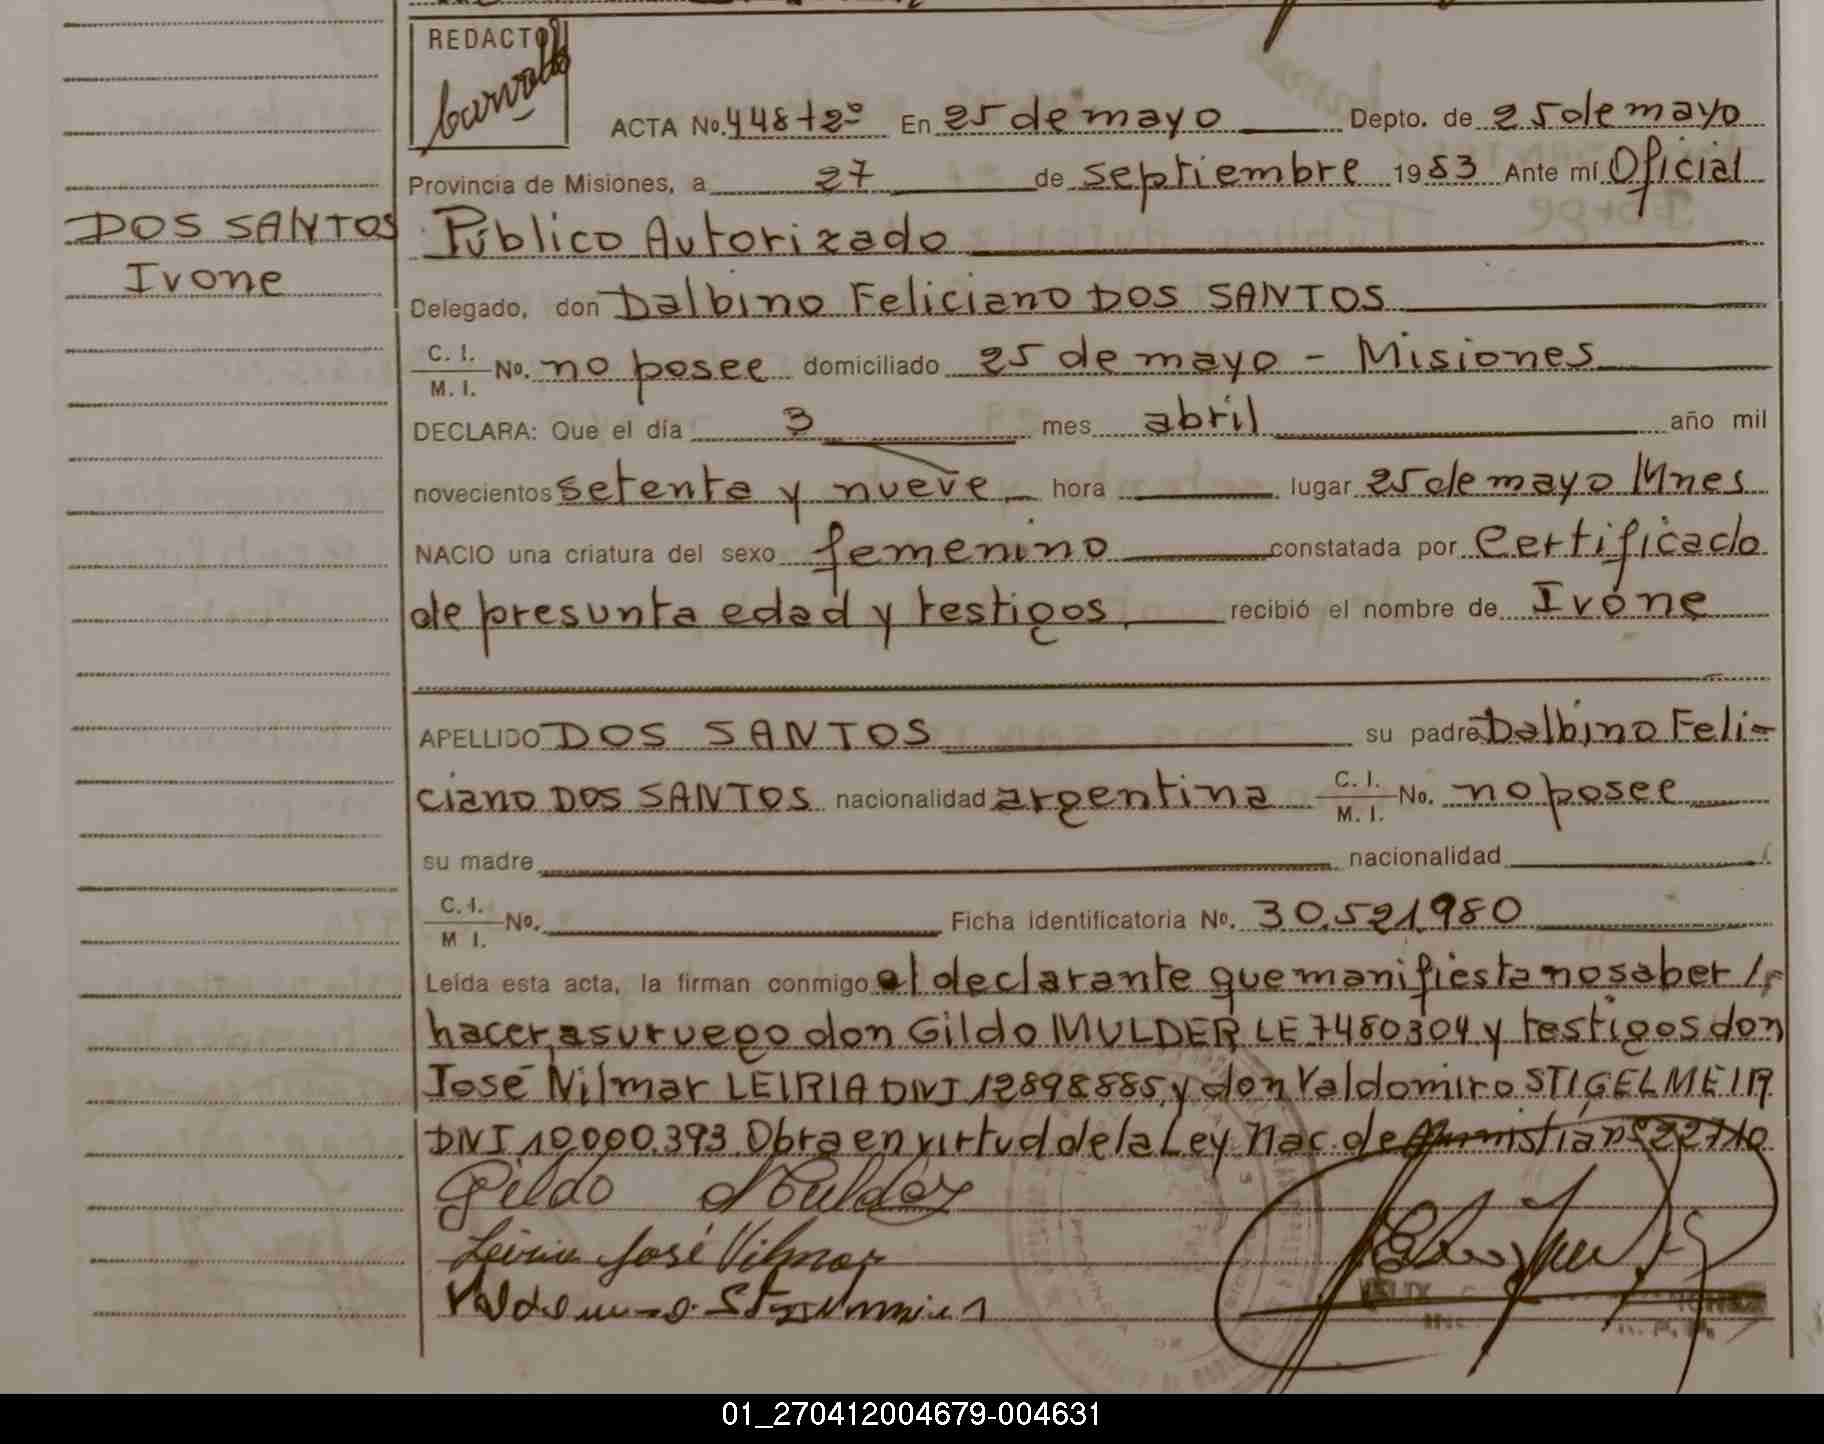 REDACTOR
ACTA No. 448 t 2º En 25 de mayo Depto. de 25 de mayo
Provincia de Misiones, a 27 de septiembre 1983 Ante mí Oficial
DOS SANTOS
Ivone
Público Autorizado
Delegado, don Dalbino Feliciano DOS SANTOS
C. I. / M. I. No. no posee domiciliado 25 de mayo - Misiones
DECLARA: Que el día 3 mes abril año mil
novecientos setenta y nueve hora lugar 25 de mayo Mnes
NACIO una criatura del sexo femenino constatada por Certificado
de presunta edad y testigos, recibió el nombre de Ivone
APELLIDO DOS SANTOS su padre Dalbino Feli-
ciano DOS SANTOS nacionalidad argentina C. I. / M. I. No. no posee
su madre nacionalidad
C. I. / M I. No. Ficha identificatoria No. 30.521.980
Leída esta acta, la firman conmigo el declarante que manifiesta no saber /
hacer, a su ruego don Gildo MULDER LE 7480304 y testigos don
José Nilmar LEIRIA DNI 12898885 y don Valdomiro STIGELMEIR
DNI 10.000.393. Obra en virtud de la Ley Nac. de nº 22710
Gildo Mulder
Leiria José Vilmar
01_270412004679-004631